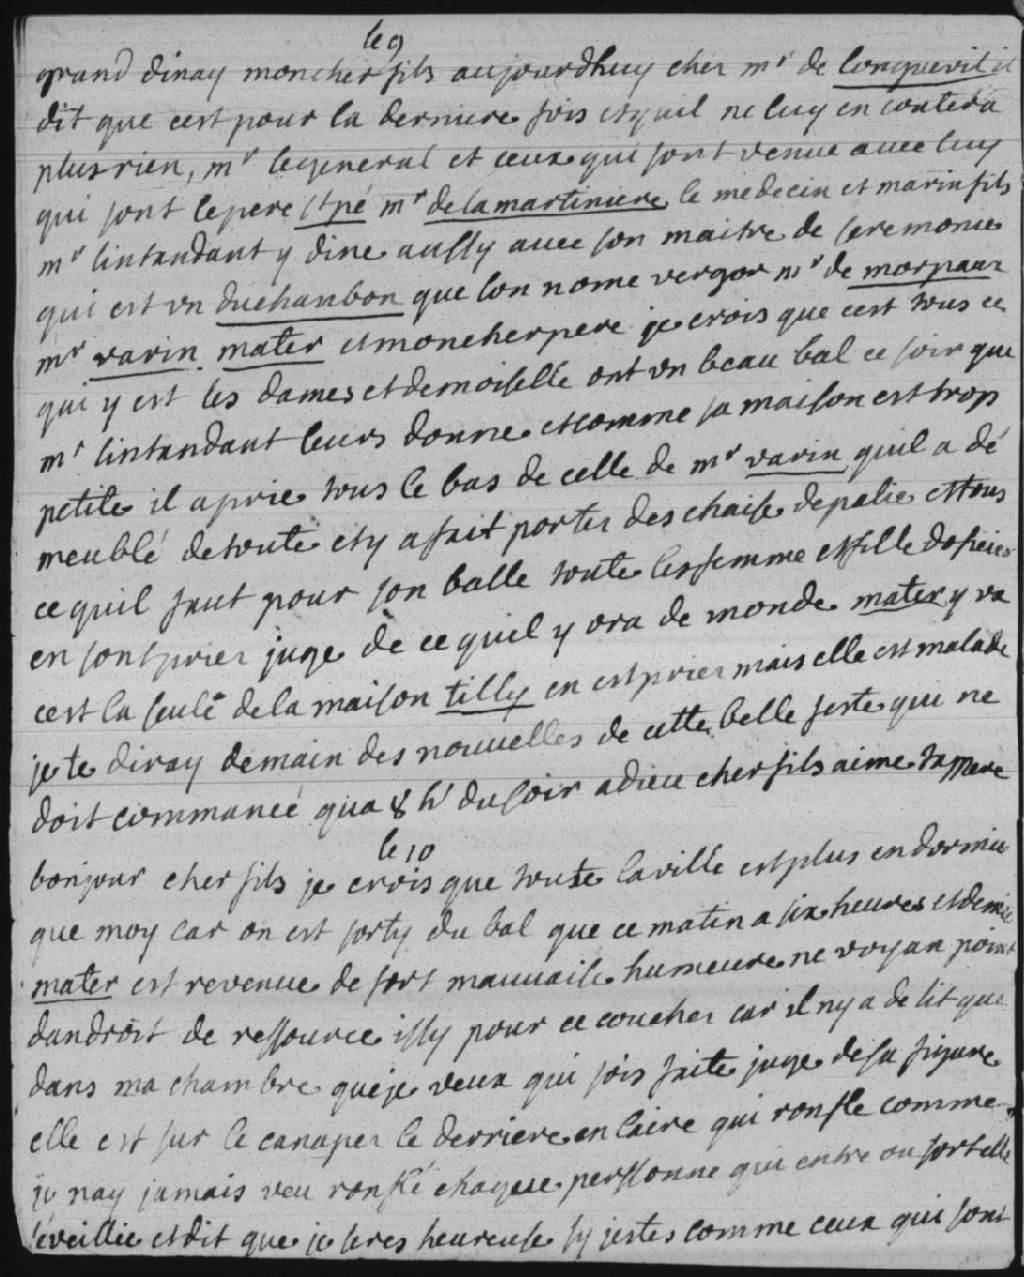 le 9
grand dinay moncher fils aujourdhuy cher mr de longuevil il
dit que cest pour la derniere fois etquil ne luy en coutera
plus rien, mr legeneral et ceux qui sont venue avec luy
qui sont lepere st pé mr delamartiniere le medecin et marin fils
mr lintandant y dine aussy avec son maitre de seremonie
qui est un duchambon que lon nome vergor mr de morpain
mr varin mater et moncherpere je crois que cest tous ce
qui y est les dames et demoiselle ont un beau bal ce soir que
mr lintandant leurs donne et comme sa maison est trop
petite il a prie tous le bas de celle de mr varin quil a dé
meublé detoute et y a fait porter des chaise depalie et tous
ce quil faut pour son balle toute les femme et fille dofficier
en sont prier juge de ce quil y ora de monde mater y va
cest la seule de la maison tilly en est prier mais elle est malade
je te diray demain des nouvelles de cette belle feste qui ne
doit commancé qua 8 hr du soir adieu cher fils aime ta mere
le 10
bonjour cher fils je crois que toute laville est plus endormie
que moy car on est sorty du bal que ce matin a six heures et demie
mater est revenue de fort mauvaise humeure ne voyan point
dandroit de ressource issy pour ce coucher car il ny a de lit que
dans ma chambre que je veux qui sois faite juge de sa figure
elle est sur le canaper le derriere en laire qui ronfle comme
je nay jamais veu ronflé chaque perssonne qui entre ou sort elle
séveillie et dit que je seres heureuse sy jestes comme ceux qui sont